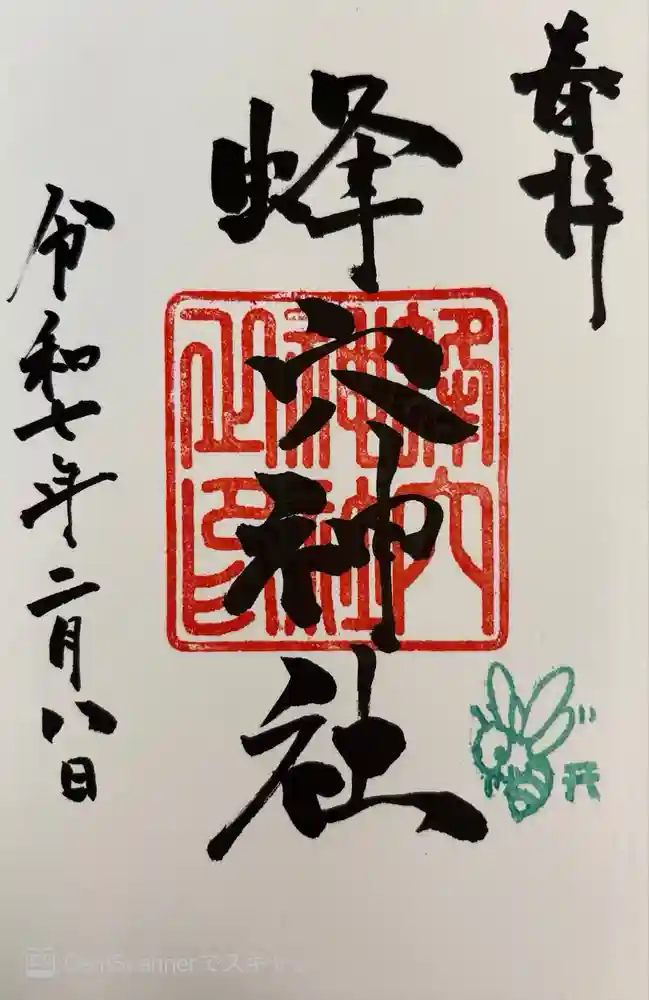 奉拝
蜂穴神社
蜂穴
神社
之印
令和七年二月八日
CamScannerでスキャン